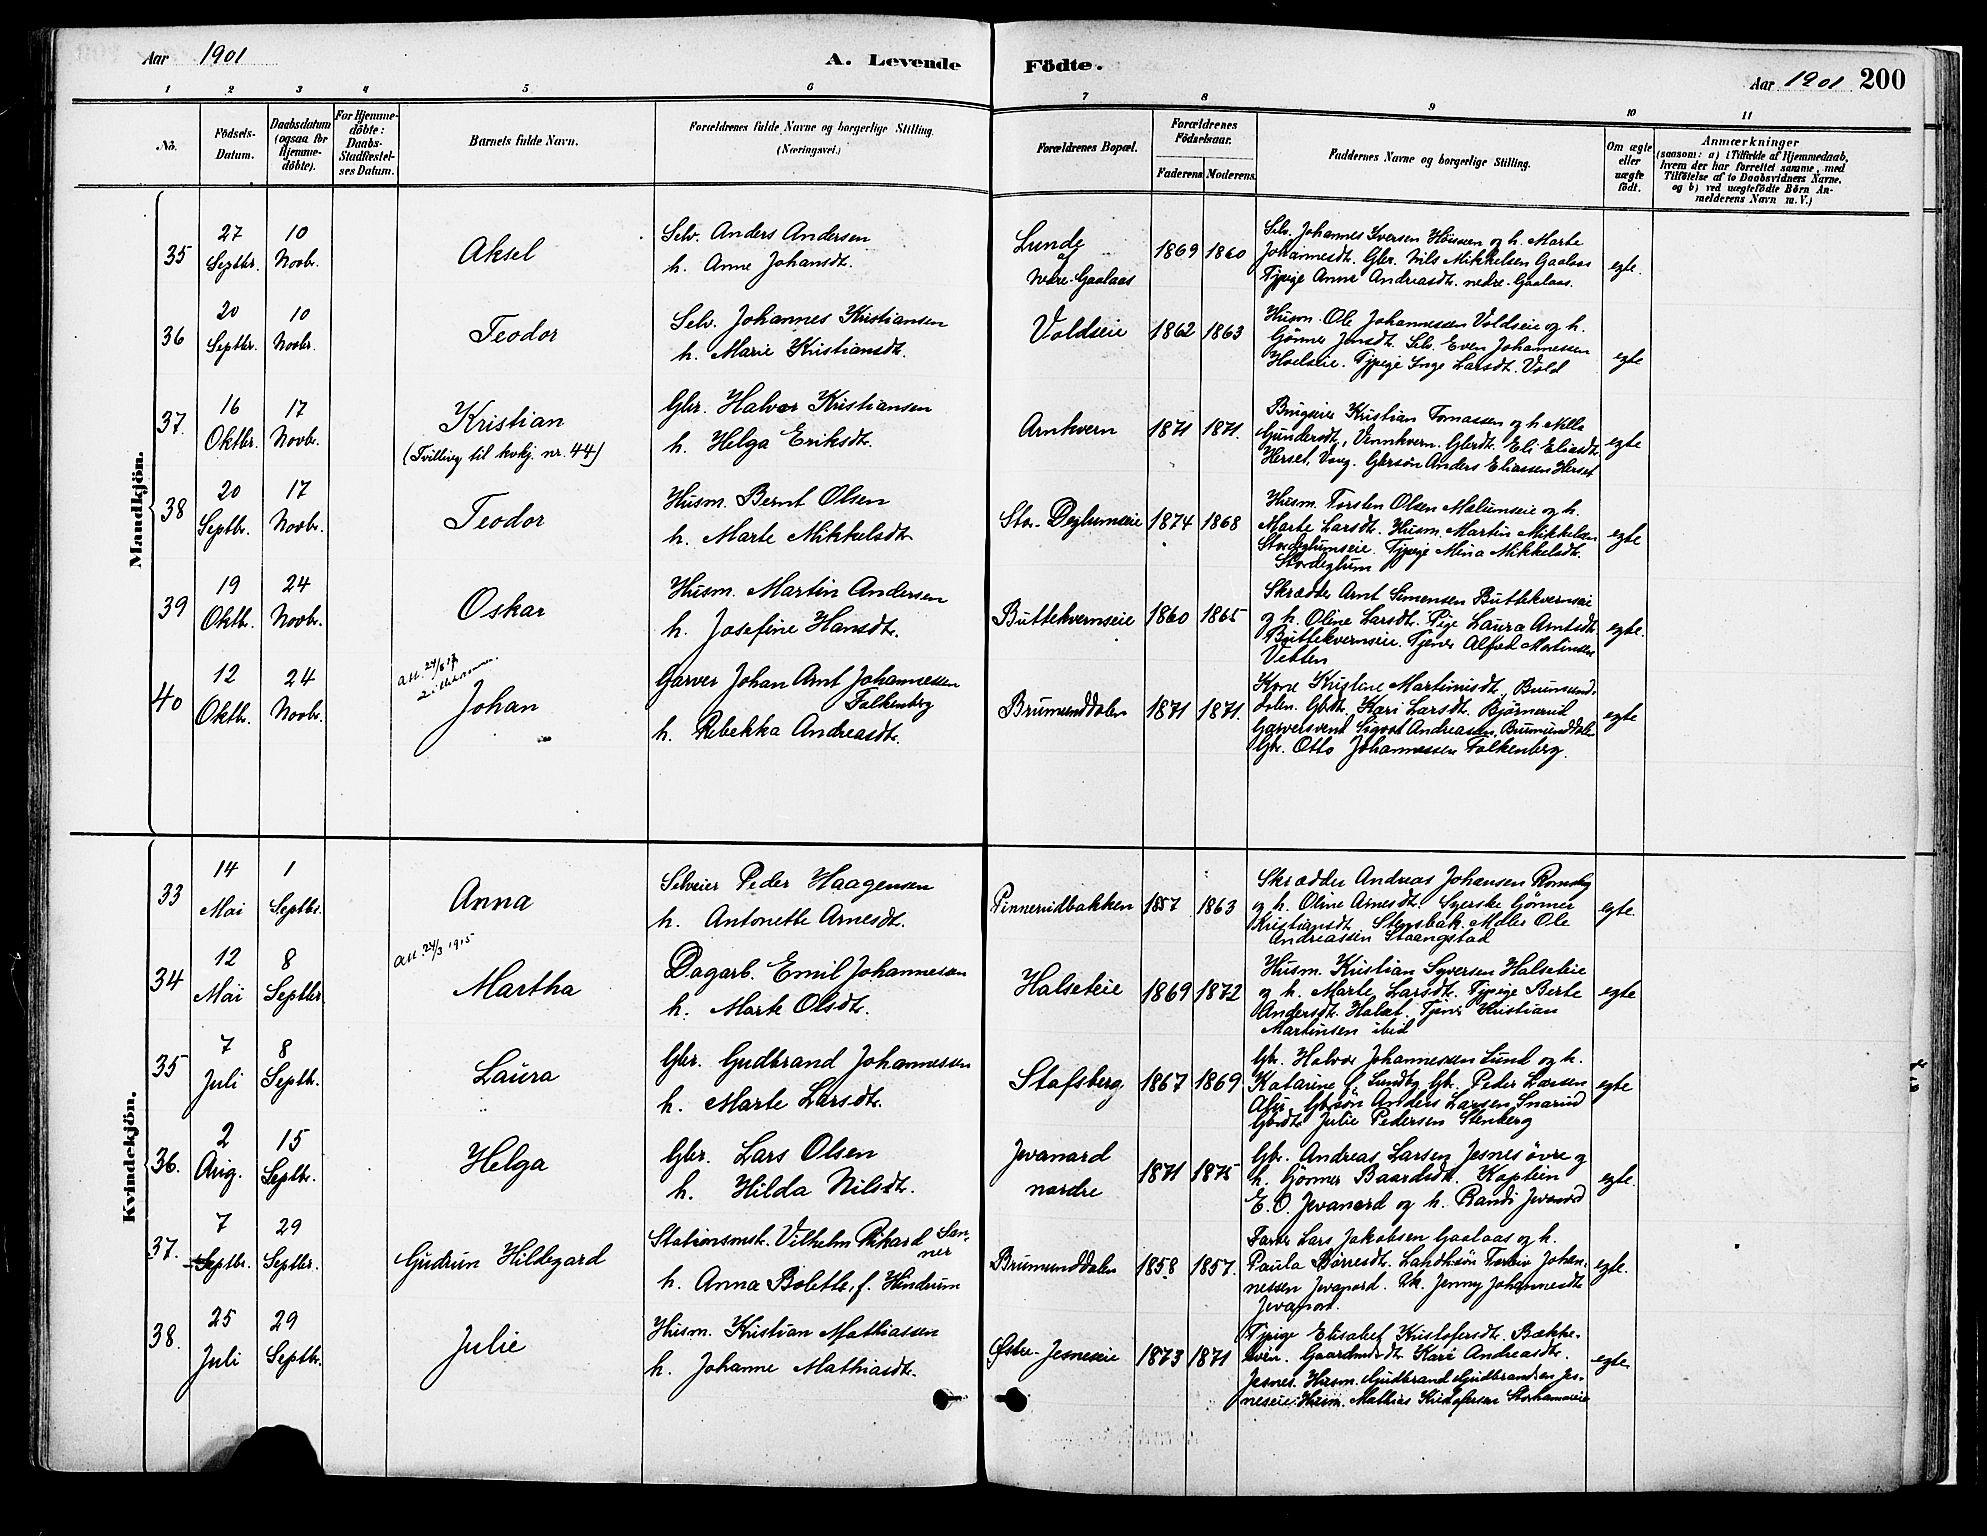 Aar 1901
A. Levende
Födte.
Aar 1901 200
1 2 3 4 5 6 7 8 9 10 11
No.
Födsels-
Datum.
Daabsdatum
(ogsaa for
Hjemme-
döbte).
For Hjemme-
döbte:
Daabs-
Stadfæstel-
ses Datum.
Barnets fulde Navn.
Forældrenes fulde Navne og borgerlige Stilling.
(Næringsvei.)
Forældrenes Bopæl.
Forældrenes
Födselsaar.
Faderens Moderens
Faddernes Navne og borgerlige Stilling.
Om ægte
eller
uægte
födt.
Anmærkninger
(saasom: a) i Tilfælde af Hjemmedaab,
hvem der har forrettet samme, med
Tilföielse af to Daabsvidners Navne,
og b) ved uægtefödte Börn An-
melderens Navn m. V.)
Mandkjön.
35
27
Septbr.
10
Novbr.
Aksel
Selv. Anders Andersen
h. Anne Johansdt.
Lunde
af
Nedre-Gaalaas
1869 1860
Selv. Johannes Iversen og h. Marte
Johannesdt. Gbr. Nils Mikkelsen Gaalaas
Tjpige Anne Andreasdt. nedre-Gaalaas.
egte.
36
20
Septbr.
10
Novbr.
Teodor
Selv. Johannes Kristiansen
h. Marie Kristiansdt.
Voldseie
1862 1863
Husm. Ole Johannessen Voldseie og h.
Gönner Jensdt. Selv. Even Johannessen
Hoelseie. Tjpige Inge Larsdt. Vold
egte
37.
16
Oktbr.
17
Novbr.
Kristian
(Tvilling til kvkj. nr. 44)
Gbr. Halvor Kristiansen
h. Helga Eriksdt.
Arnkvern
1871 1871.
Brugseier Kristian Tomassen og h. Nille
Gundersdt, Vennkvern. Gbrdt. Eli Eliasdt.
Herset, Vang. Gbrsön Anders Eliassen Herset
egte
38
20
Septbr.
17
Novbr.
Teodor
Husm. Bernt Olsen
h. Marte Mikkelsdt.
Stor-Deglumseie
1874 1868
Husm. Torsten Olsen Malumseie og h.
Marte Larsdt. Husm. Martin Mikkelsen
Stordeglumseie. Tjpige Mina Mikkelsdt.
Stordeglum
egte
39
19
Oktbr.
24
Novbr.
Oskar
Husm. Martin Andersen
h. Josefine Hansdt.
Buttekvernseie
1860 1865
Skrædder Arnt Simensen Buttekvernseie
og h. Oline Larsdt. Pige Laura Arntsdt.
Buttekvernseie. Tjener Alfred Martinsen
Vetten
egte.
40
12
Oktbr.
24
Novbr.
Att. 24/8 17
Johan
Garver Johan Arnt Johannessen
Falkenberg
h. Rebekka Andreasdt.
Brumunddalen
1871 1871.
Kone Kristine Martinusdt., Brumund-
dalen. Gbdt. Kari Larsdt. Björnerud
Garversvend Sigvart Andreassen, Brumunddalen
Gbr. Otto Johannessen Falkenberg.
egte
Kvindekjön.
33
14
Mai
1
Septbr.
Anna
Selveier Peder Haagensen
h. Antonette Arnesdt.
Pinnerudbakken
1857 1863
Skrædder Andreas Johansen Romsby
og h. Oline Arnesdt. Syerske Gönner
Kristiansdt. Stensbak. Maler Ole
Andreassen Staangstad
egte.
34
12
Mai
8
Septbr
Att. 24/3 1915
Martha
Dagarb. Emil Johannesen
h. Marte Olsdt.
Halseteie
1869 1872
Husm. Kristian Syversen Halseteie
og h. Marte Larsdt. Tjpige Berte
Andersdt. Halset. Tjener Kristian
Martinsen ibid
egte
35
7
Juli
8
Septb.
Laura
Gbr. Gudbrand Johannessen
h. Marte Larsdt.
Stafsberg
1867 1869
Gbr. Halvor Johannessen Lund og h.
Katarine f. Lundby Gbr. Peder Larsen
Gbrsön Anders Larsen Snarud
Gbrdt. Julie Pedersen Stenberg
egte
36.
2
Aug.
15
Septbr.
Helga
Gbr. Lars Olsen
h. Hilda Nilsdt.
Jevanard
nordre
1871 1875
Gbr. Andreas Larsen Jesnes övre og
h. Gönner Baardsdt. Kaptein
E. O. Jevanord og h. Randi Jevanord
egte.
37.
7
Septbr.
29
Septbr.
Gudrun Hildegard
Stationsmstr. Vilhelm Rikard San-
ner
h. Anna Bolette, f. Hundrum
Brumunddalen
1858 1857.
Farver Lars Jakobsen Gaalaas og h.
Paula Börresdt. Landhsön Torleiv Johan-
nessen Jevanord. Pk. Jenny Johannesdt
Jevanord.
egte.
38.
25
Juli
29
Septbr.
Julie
Husm. Kristian Mathiassen
h. Johanne Mathiasdt.
Østre-Jesneseie
1873 1871
Tjpige Elisabet Kristofersdt. Bække-
sven. Gaardmdsdt. Kari Andreasdt.
Jesnes. Husm. Gudbrand Gudbrandsen Jes-
neseie. Husm. Mathias Kristofersen Storhamareie
egte